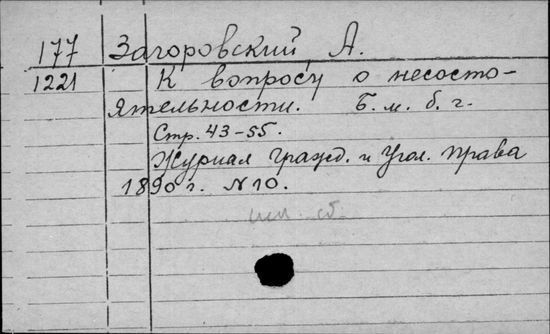 177 Загоровский, А.
1221 К вопросу о несосто-
ятельности. Б. м. б. г.
Стр. 43-55.
Журнал Гражд. и Угол. права
1890 г. N 10.